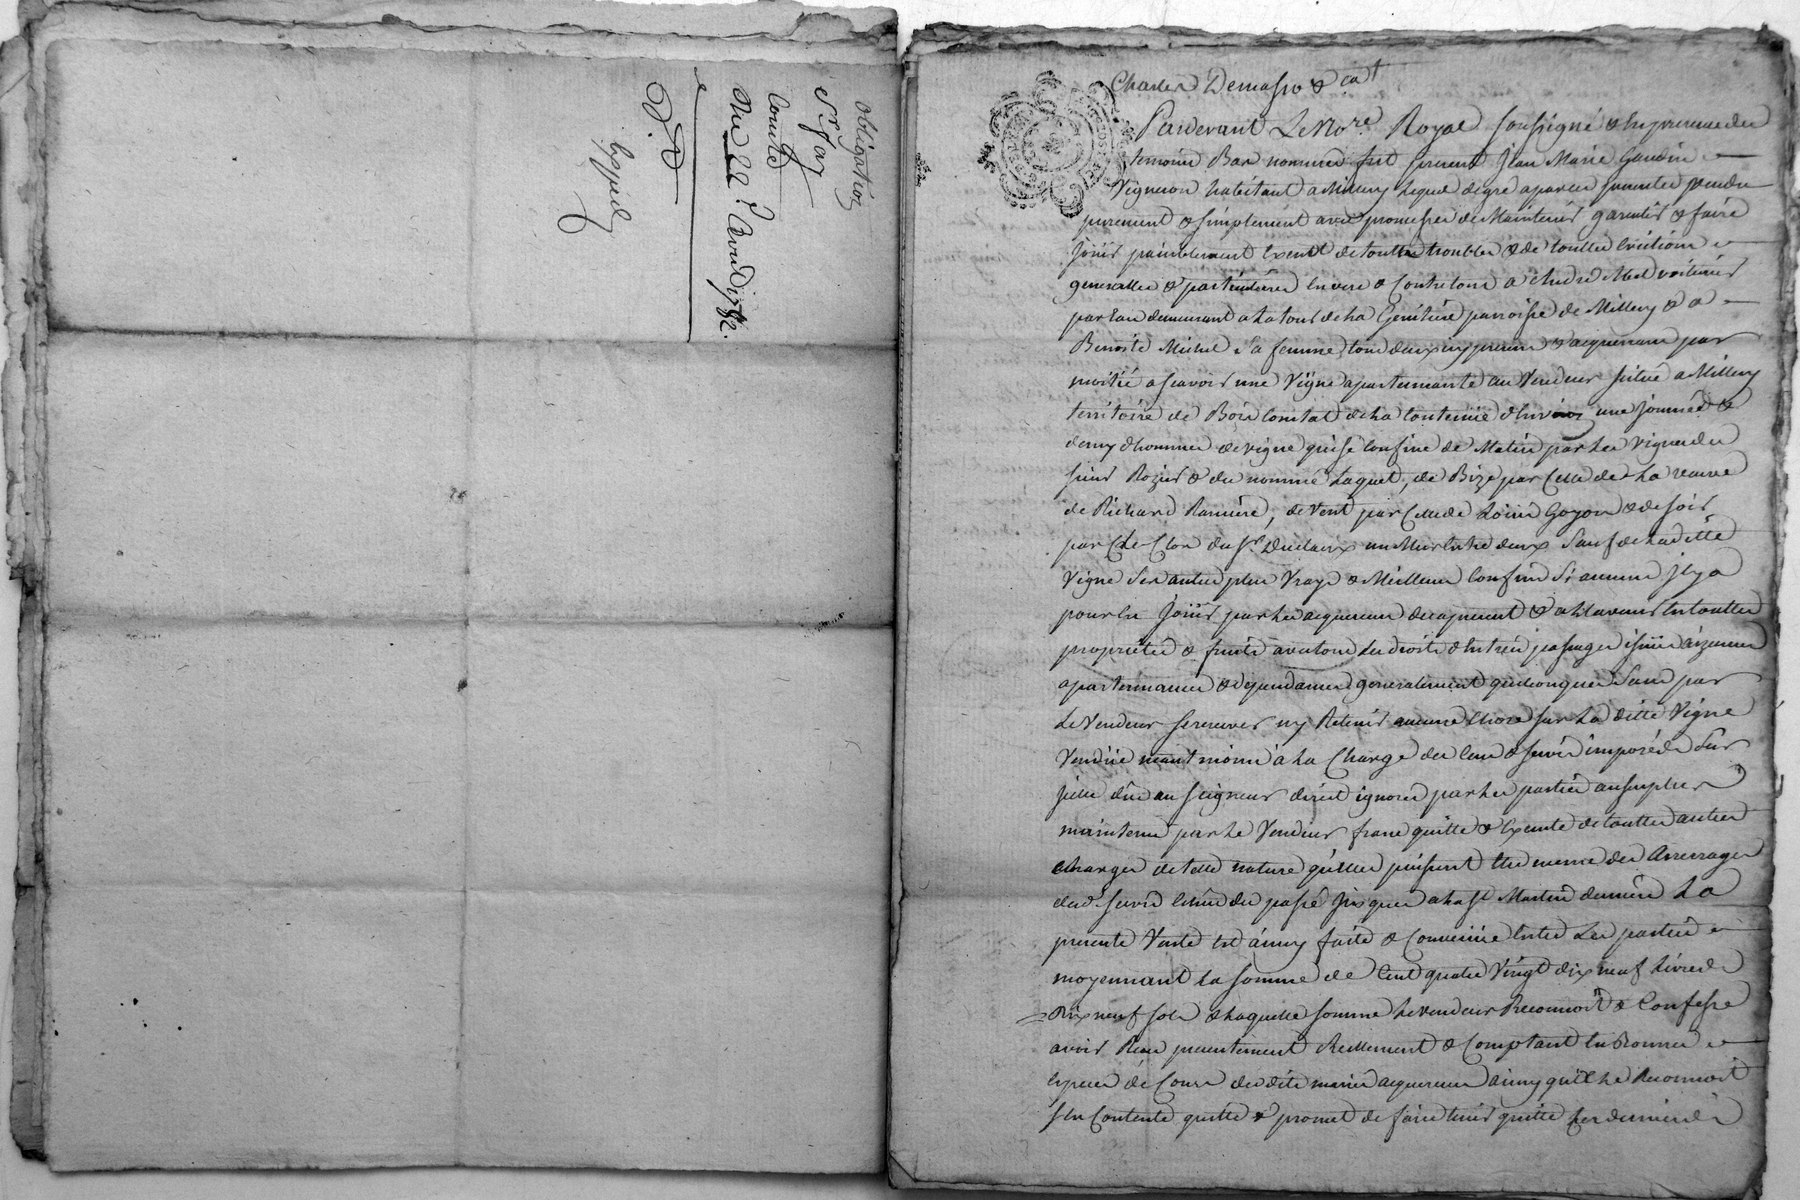 obligation
Sr fay
Comte
Du 22e Avril 1782.
Exped
Charles Demasso & ca
Pardevant Le No.re Royal soussigné & En presence des
temoins Bas nommés fut present Jean Marie Gaudin
Vigneron habitant a Millery Lequel de gré a par ces presentes vendu
purement & simplement avec promesse de Maintenir garentir & faire
Jouir paisiblement Exempt de touttes troubles & de touttes Evictions
generalles & particulieres Envers & Contre tous a André Mest voiturier
par Eau demeurant a La tour de La paroisse de Millery & a
Benoite Michel Sa femme tous deux icy presens & acquereurs par
moitié a scavoir une Vigne apartenante au Vendeur situé a Millery
territoire de Bois Comtal de La Contenüe d'Environ une Journée &
demy d'hommes de vigne qui se Confine de Matin par Les Vignes des
sieur Rozier & du nommé Laquet, de Bize par Celle de La veuve
de Richard Ranniere, de Vent par Celle de Loüis Goyon & de soir
par Le Clos du Sr Duclaux un Mur Entre deux Sauf de Laditte
Vigne Ses autres plus Vrays & Meilleurs Confins Si aucuns Jl y a
pour En Joüir par Les acquereurs des a present & a L'avenir En touttes
proprietés & fruits avec tous Les droits d'Entrées passages issües aizances
apartenances & dependances generalement quelconques Sans par
Le Vendeur se reserver ny Retenir aucune Chose sur La ditte Vigne
Vendüe neant moins à La Charge des Cens & servis imposés Sur
Jcelle dûs au seigneur direct ignorés par Les parties au surplus
maintenüe par Le Vendeur franc quitte & Exempte de touttes autres
charges de telle nature qu'Elles puissent Etre meme des Arrerages
desd. servis Echus du passé Jusques a La St Martin derniere La
presente Vente est ainsy faite & Convenüe Entre Les parties
moyennant La somme de Cent quatre Vingt dix neuf Livres
Dix neuf sols de Laquelle somme Le vendeur Reconnoit & Confesse
avoir Reçu presentement Reellement & Comptant En Bonnes
Especes de Cours des dits mariés acquereurs ainsy qu'il Le Reconnoit
s'En Contente quitte & promet de faire tenir quitte Les derniers